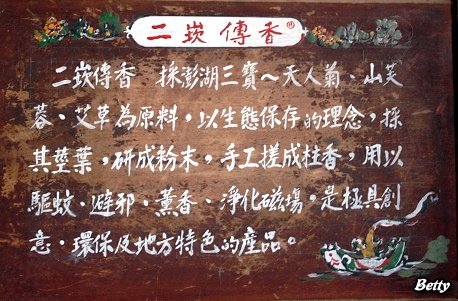 二崁傳香
二崁傳香　採澎湖三寶～天人菊、山芙
蓉、艾草為原料，以生態保存的理念，採
其莖葉，研成粉末，手工搓成柱香，用以
驅蚊、避邪、薰香、淨化磁場。是極具創
意、環保及地方特色的產品。
Betty